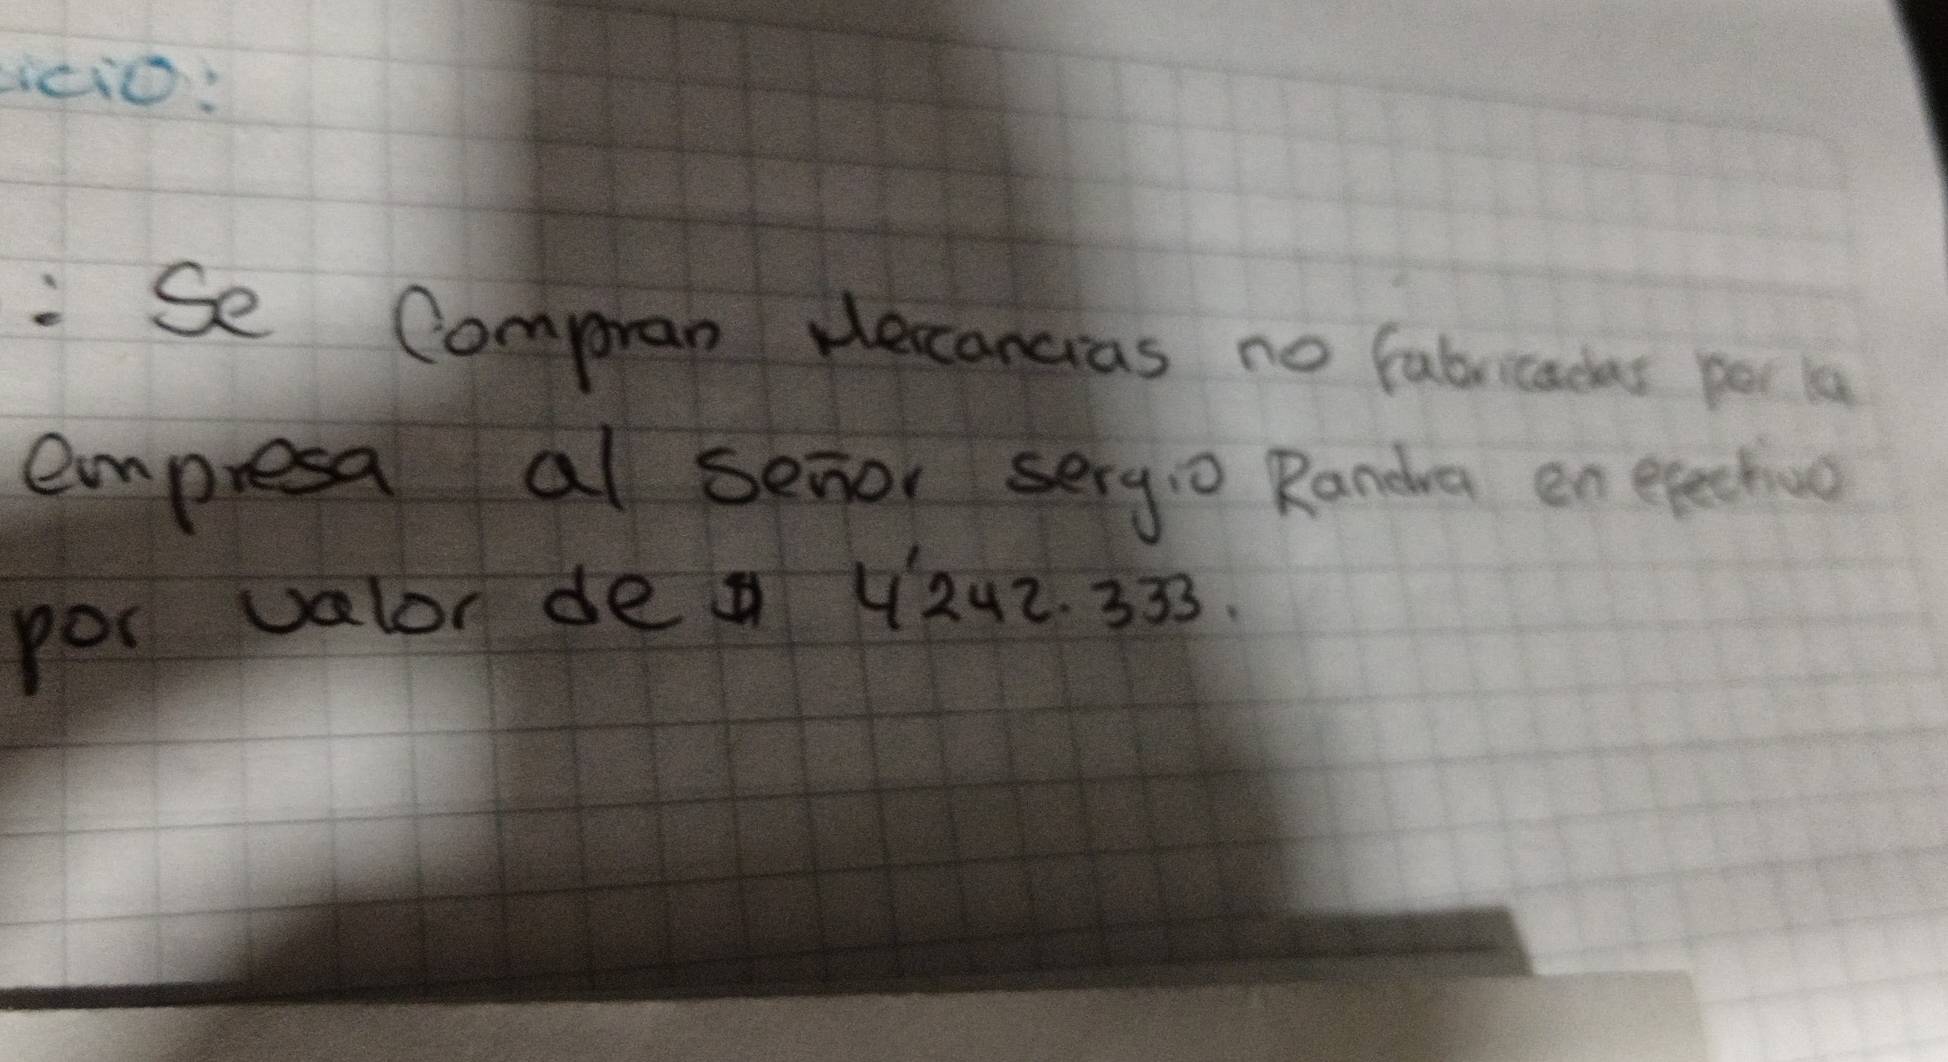 icio:
: Se Compran Mercancias no fabricadas por la
empresa al señor sergio Randra en efectivo
por valor de $ 4'242.333.